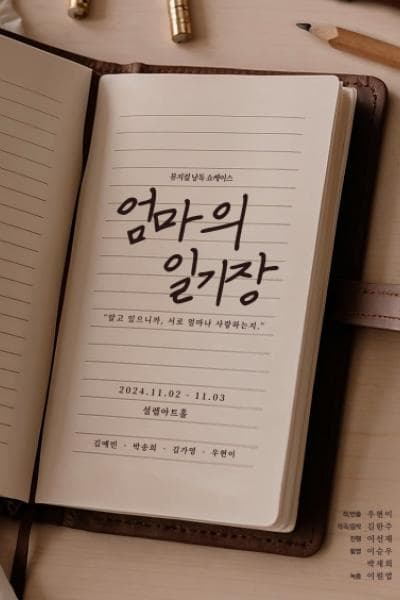 뮤지컬 낭독 쇼케이스
엄마의
일기장
"알고 있으니까, 서로 얼마나 사랑하는지."
2024.11.02 - 11.03
설렘아트홀
김예린 · 박송희 · 김가영 · 우현이
우현이
김한주
진행 이선재
촬영 이승우
박세희
녹음 이원엽